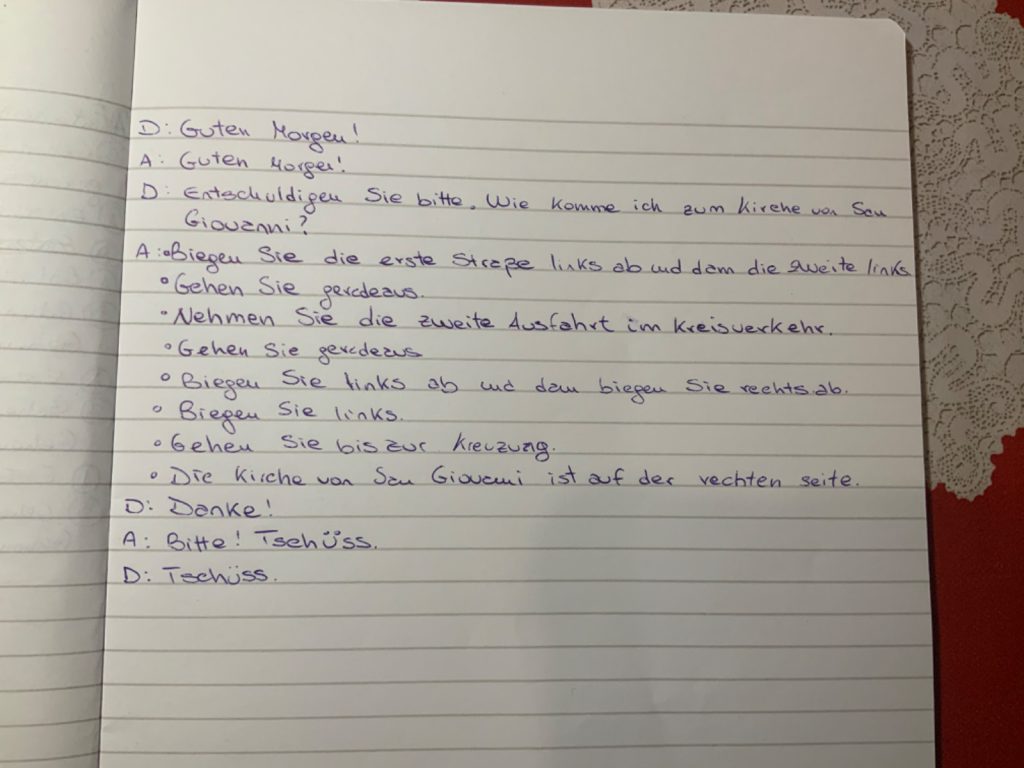 D: Guten Morgen!
A: Guten Morgen!
D: Entschuldigen Sie bitte. Wie komme ich zum Kirche von San
Giovanni?
A: • Biegen Sie die erste Straße links ab und dann die zweite links
• Gehen Sie geradeaus.
• Nehmen Sie die zweite Ausfahrt im Kreisverkehr.
• Gehen Sie geradeaus
• Biegen Sie links ab und dann biegen Sie rechts ab.
• Biegen Sie links.
• Gehen Sie bis zur Kreuzung.
• Die Kirche von San Giovanni ist auf der rechten seite.
D: Danke!
A: Bitte! Tschüss.
D: Tschüss.